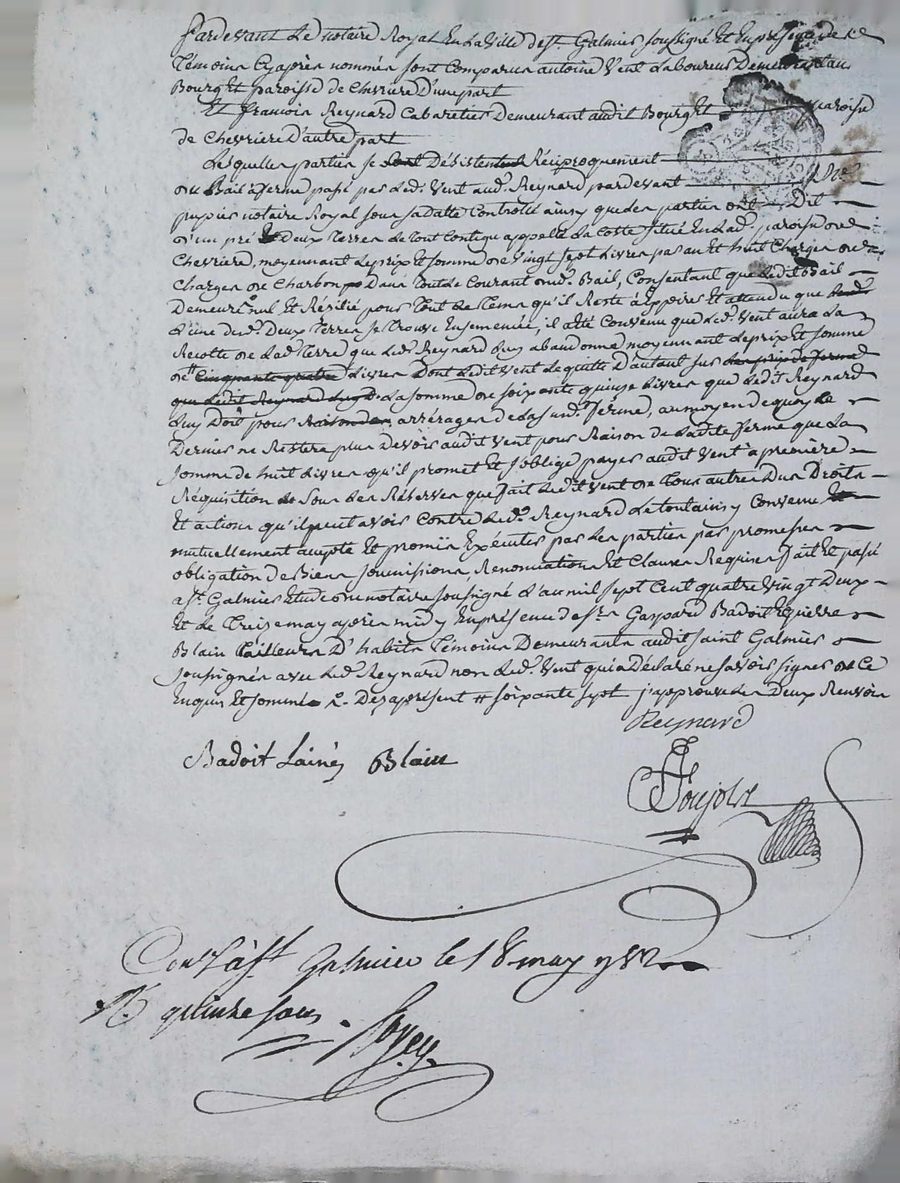 Pardevant Le notaire Royal En La ville de st. Galmier soussigné Et En presence des
Témoins Cy apres nommés sont Comparus antoine Vent Laboureur Demeurant au
Bourg Et paroisse de Chevriere D'une part
Et francois Reynard Cabaretier Demeurant audit Bourg Et paroisse
de Chevriere D'autre part
Lesquelles parties se sont Désistent Réciproquement
Du Bail a ferme passé par Led. Vent aud. Reynard pardevant Me
pupier notaire Royal sous sa datte Controllé ainsy que des parties ont Dit
D'un pré Et Deux Terres Le tout Contigu appellé La Coste situé En Lad. paroisse de
Chevriere, moyennant Le prix Et somme de vingt sept Livres par an Et huit Charges
Charges de Charbon Dans tout Le Courant dud. Bail, Consentant que Ledit Bail
Demeure nul Et Résilié pour Tout Le Tems qu'il Reste à Expirer Et attendu que
L'une desd. Deux Terres se Trouve Ensemencée, il a Eté Convenu que Led. Vent aura La
Recolte de Lad. Terre que Led. Reynard Luy abandonne moyennant Le prix Et somme
de Cinquante quatre Livres Dont Ledit Vent Le quitte D'autant sur Le prix de ferme
que Ledit Reynard Luy doit La somme de soixante quinze Livres que Ledit Reynard
Luy Doit pour Raison des arrérages de La susd. ferme, au moyen de quoy Le
Dernier ne Restera plus Devoir audit Vent pour Raison de Ladite ferme que La
somme de huit Livres qu'il promet Et s'oblige payer audit Vent à premiere
Réquisition Sous Les Réserves que fait Ledit Vent de Tous autres Dus Droits
Et actions qu'il peut avoir Contre Led. Reynard Le tout ainsy Convenu
mutuellement accepté Et promis Exécuter par Les parties par promesses
obligation de Biens soumissions, Renonciations Et Clauses Requises fait Et passé
a st. Galmier Etude du notaire soussigné L'an mil sept Cent quatre Vingt Deux
Et Le Treize may apres midy En présence de sr. Gaspard Badoit Et pierre
Blain tailleur D'habits Témoins Demeurants audit saint Galmier
soussignés avec Led. Reynard non Led. Vent qui a Déclaré ne savoir signer de Ce
Enquis Et sommé Des apresent # soixante sept j'approuve Les Deux Renvois
Reynard
Badoit Lainé Blain
Poujols
Conté à st Galmier le 18 may 1782
R. quinze sous